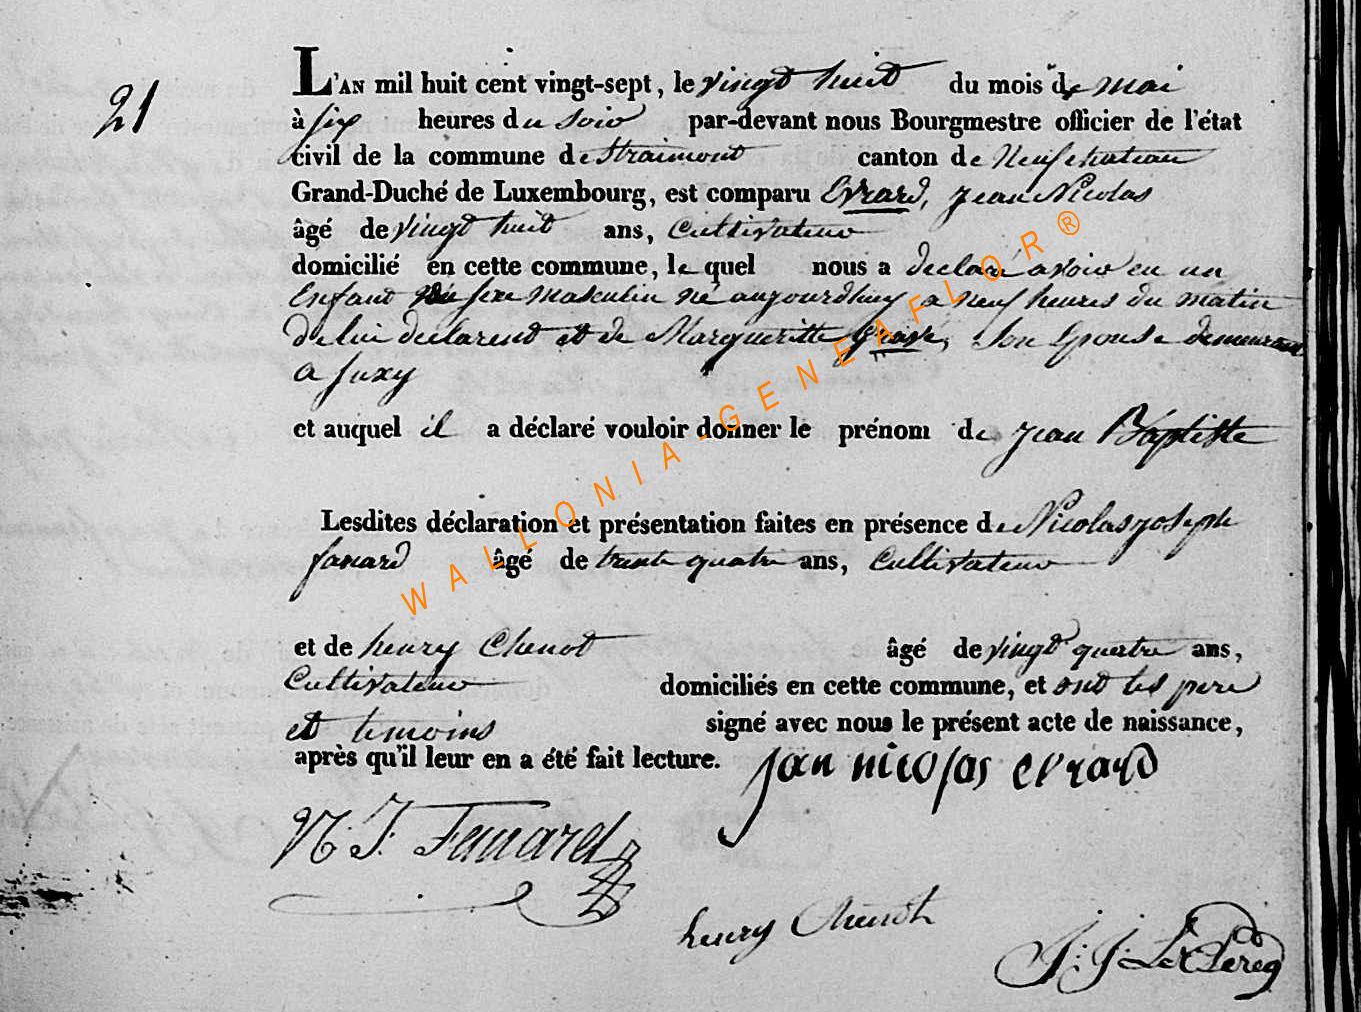 21
L'AN mil huit cent vingt-sept, le vingt huit du mois de mai
à six heures du soir par-devant nous Bourgmestre officier de l'état
civil de la commune de Straimont canton de Neufchateau
Grand-Duché de Luxembourg, est comparu Evrard, Jean Nicolas
âgé de vingt huit ans, Cultivateur
domicilié en cette commune, le quel nous a declaré avoir eu un
Enfant du sexe masculin né aujourdhuy a neuf heures du matin
de lui declarent et de Margueritte Son Epouse demeurant
a Suxy
et auquel il a déclaré vouloir donner le prénom de jean Baptiste
Lesdites déclaration et présentation faites en présence de Nicolas joseph
fanard âgé de trente quatre ans, Cultivateur
et de henry Chenot âgé de vingt quatre ans,
Cultivateur domiciliés en cette commune, et ont les pere
et temoins signé avec nous le présent acte de naissance,
après qu'il leur en a été fait lecture. jan nicolas evrard
N. J. Fanard
henry Chenot
J: J: Le Clereq
WALLONIA-GENEAFLOR®